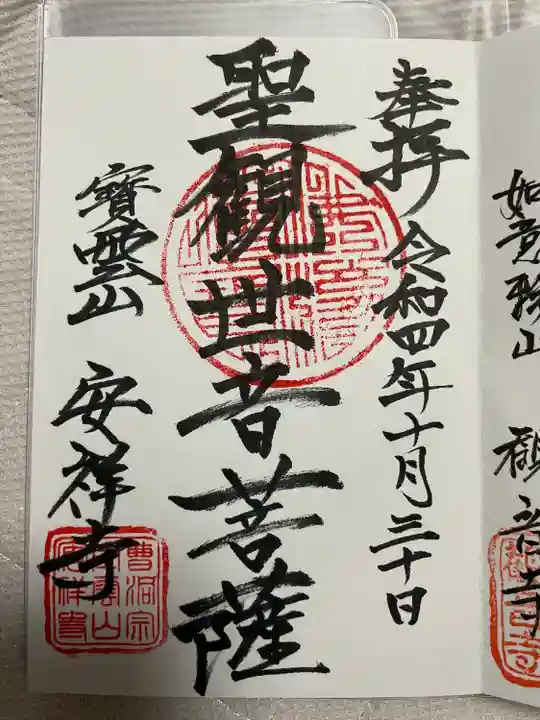 奉拝 令和四年十月三十日
聖観世音菩薩
寶雲山 安祥寺
曹洞宗
寶雲山
安祥寺
如意
山 観音寺